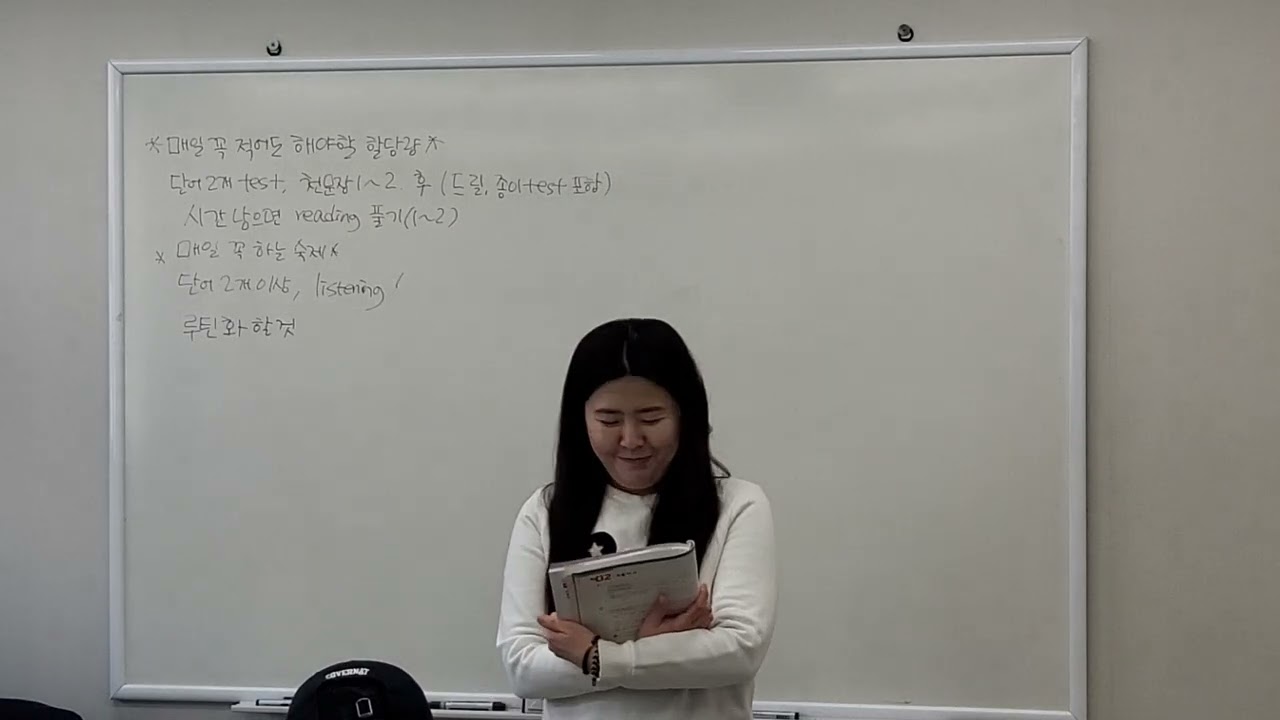 *매일 꼭 적어도 해야할 할당량*
단어 2개 test, 천문장 1~2. 후 (드릴, 종이test 포함)
시간 남으면 reading 풀기(1~2)
* 매일 꼭 하는 숙제*
단어 2개 이상, listening 1
루틴화 할 것
COVERNAT
02